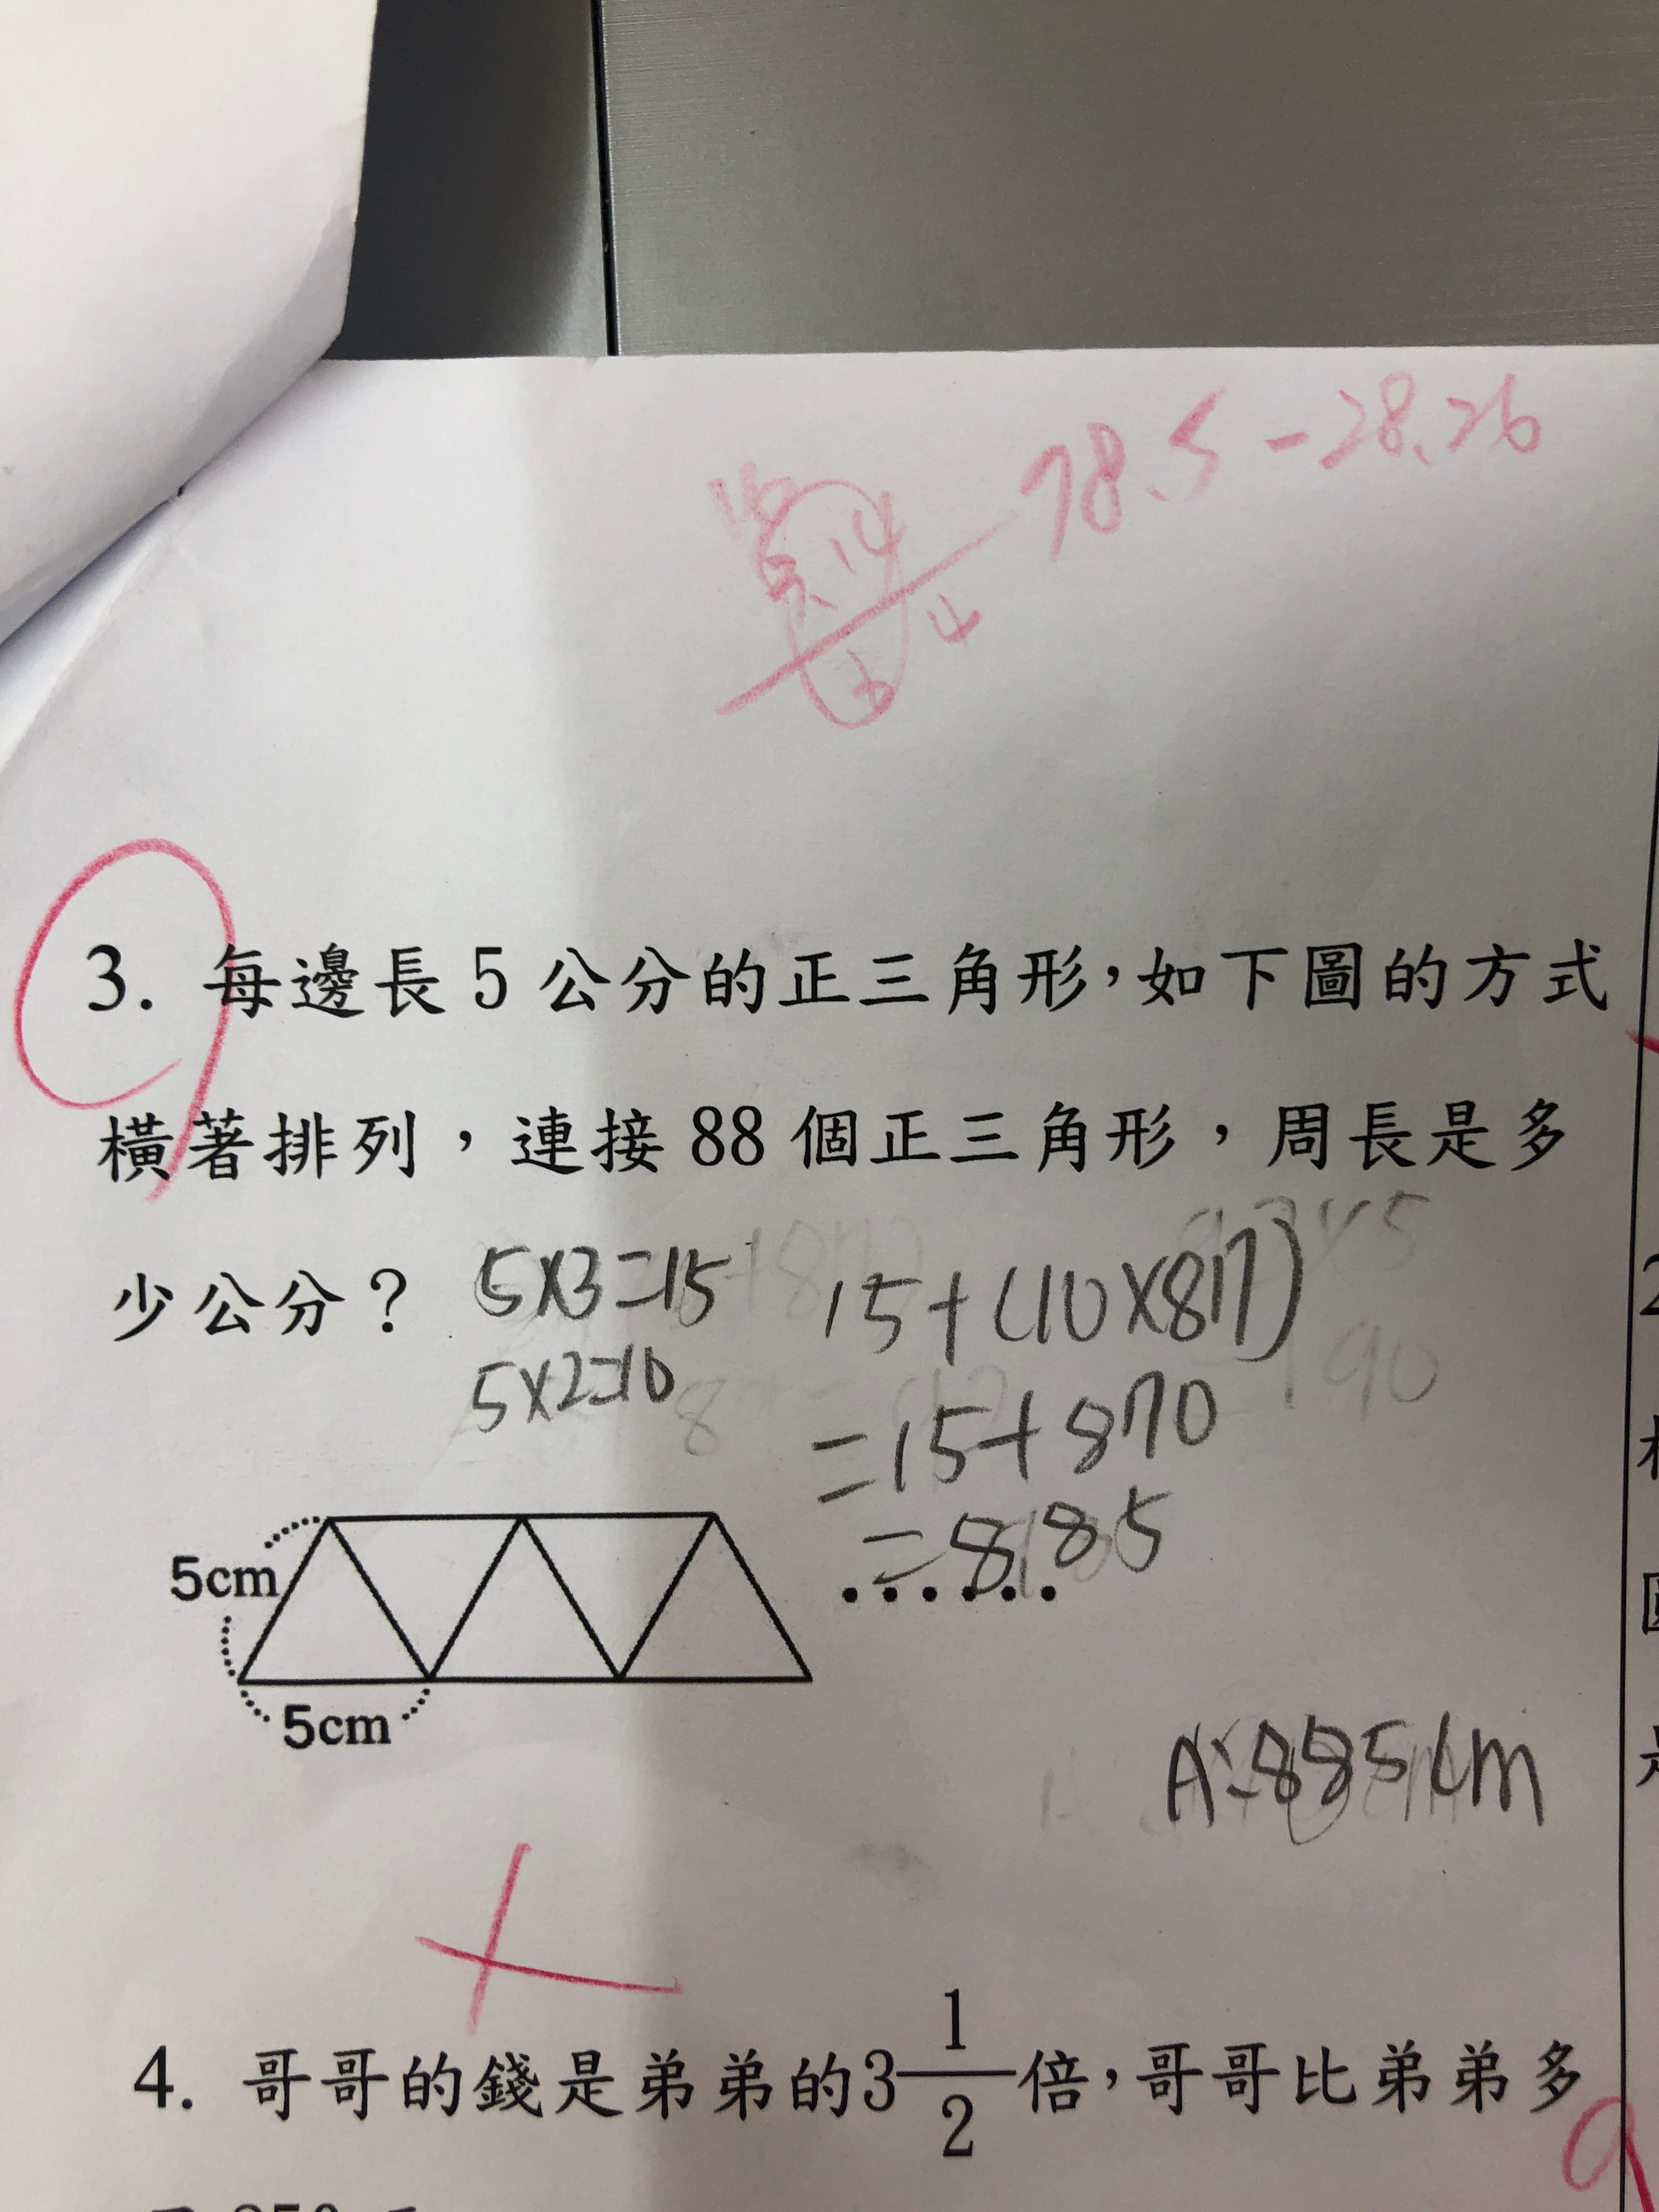 78.5-28.26
3.14
4
3. 每邊長 5 公分的正三角形,如下圖的方式
橫著排列,連接 88 個正三角形,周長是多
少公分?
5×3=15
5×2=10
15+(10×87)
=15+870
=885
5cm
5cm
......
A:885cm
4. 哥哥的錢是弟弟的3 1/2 倍,哥哥比弟弟多